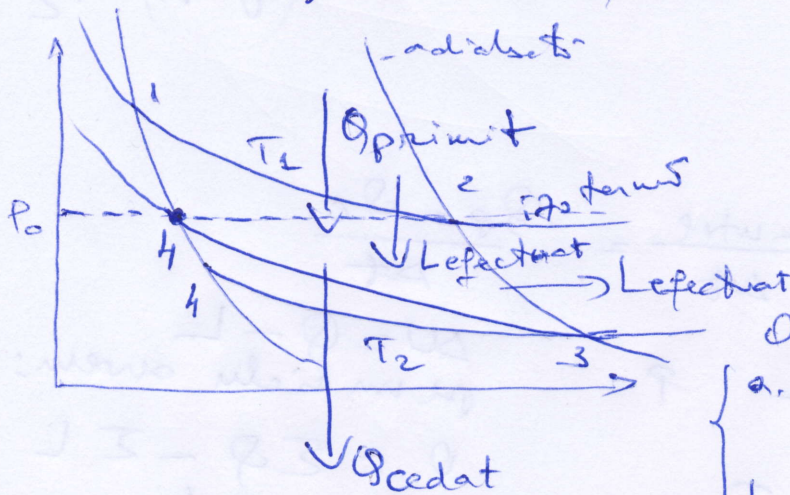 adiabată
1
T₁
Qprimit
2
izotermă
P₀
4
Lefectuat
Lefectuat
4
T₂
3
a.
Qcedat